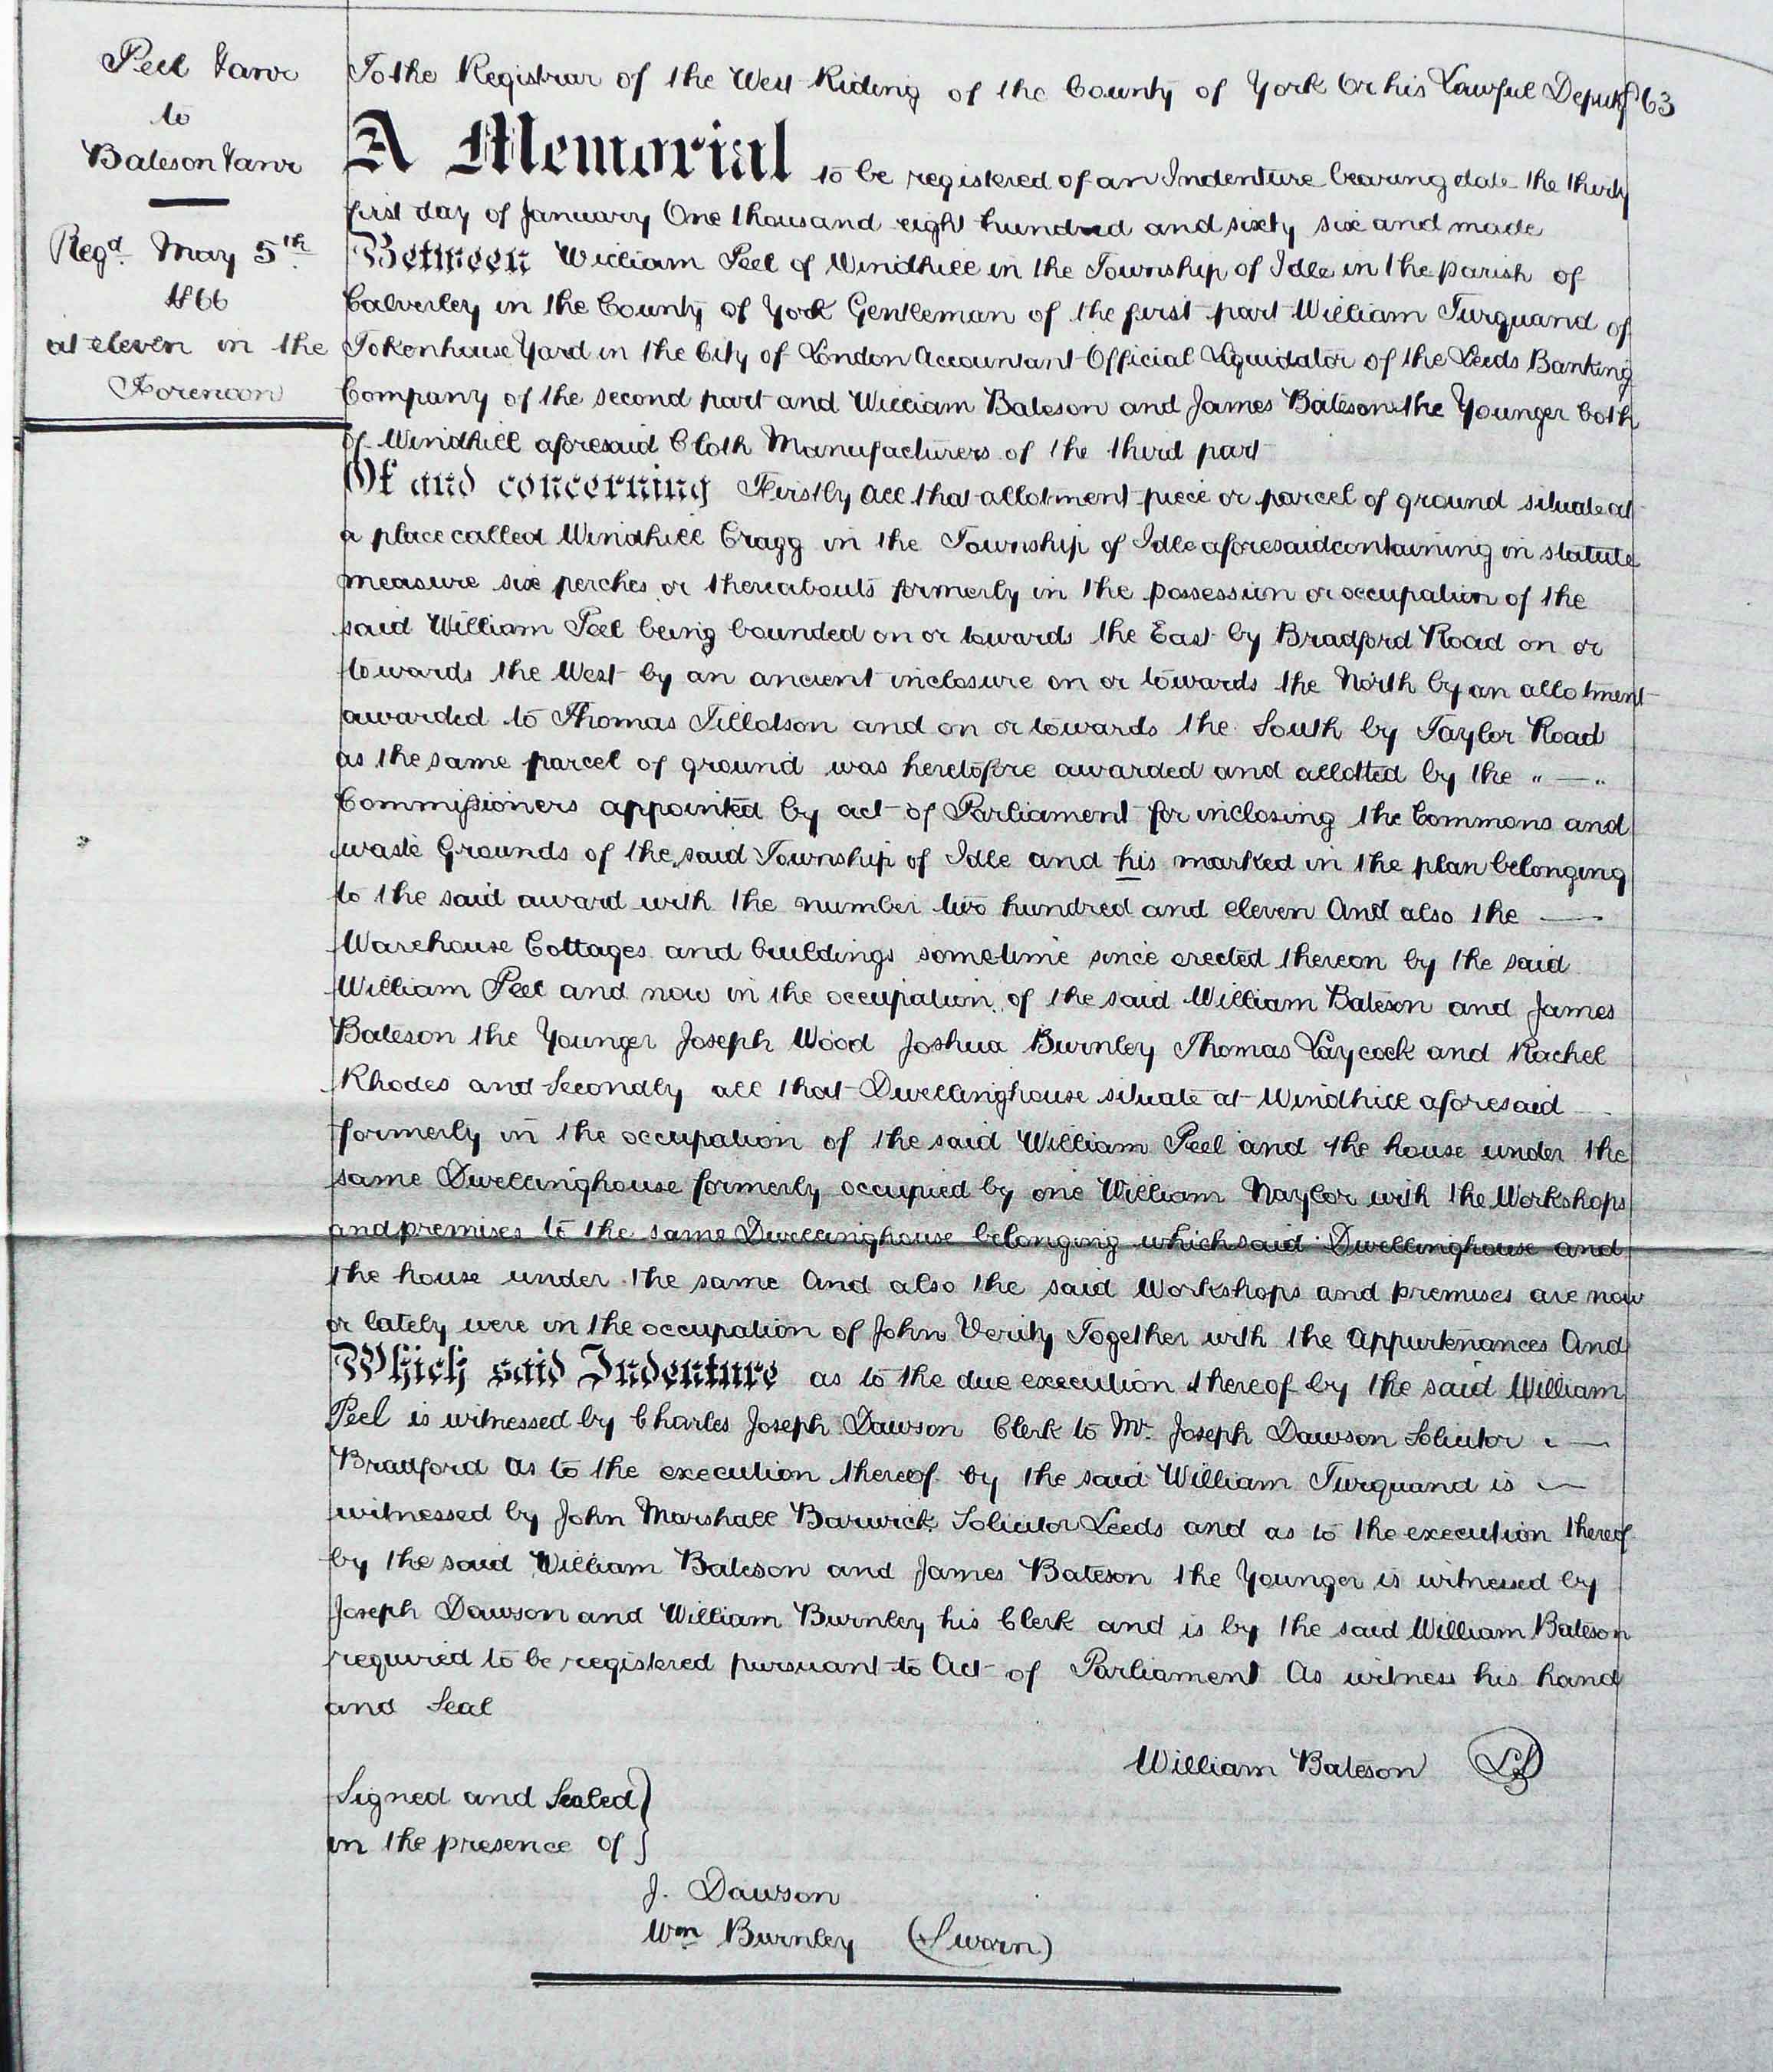 Peel & anr
to
Bateson & anr
Regd. May 5th
1866
at eleven in the
Forenoon
To the Registrar of the West Riding of the County of York Or his Lawful Deputy 63
A Memorial to be registered of an Indenture bearing date the thirty
first day of January One thousand eight hundred and sixty six and made
Between William Peel of Windhill in the Township of Idle in the parish of
Calverley in the County of York Gentleman of the first part William Turquand of
Tokenhouse Yard in the City of London Accountant Official Liquidator of the Leeds Banking
Company of the second part and William Bateson and James Bateson the Younger both
of Windhill aforesaid Cloth Manufacturers of the third part
Of and concerning Firstly All that allotment piece or parcel of ground situate at
a place called Windhill Cragg in the Township of Idle aforesaid containing in statute
measure six perches or thereabouts formerly in the possession or occupation of the
said William Peel being bounded on or towards the East by Bradford Road on or
towards the West by an ancient inclosure on or towards the North by an allotment
awarded to Thomas Tillotson and on or towards the South by Taylor Road
as the same parcel of ground was heretofore awarded and allotted by the " — "
Commissioners appointed by act of Parliament for inclosing the Commons and
waste Grounds of the said Township of Idle and his marked in the plan belonging
to the said award with the number two hundred and eleven And also the —
Warehouse Cottages and buildings sometime since erected thereon by the said
William Peel and now in the occupation of the said William Bateson and James
Bateson the Younger Joseph Wood Joshua Burnley Thomas Laycock and Rachel
Rhodes and Secondly all that Dwellinghouse situate at Windhill aforesaid
formerly in the occupation of the said William Peel and the house under the
same Dwellinghouse formerly occupied by one William Naylor with the Workshops
and premises to the same Dwellinghouse belonging which said Dwellinghouse and
the house under the same And also the said Workshops and premises are now
or lately were in the occupation of John Verity Together with the Appurtenances And
Which said Indenture as to the due execution thereof by the said William
Peel is witnessed by Charles Joseph Dawson Clerk to Mr. Joseph Dawson Solicitor —
Bradford As to the execution thereof by the said William Turquand is —
witnessed by John Marshall Barwick Solicitor Leeds and as to the execution thereof
by the said William Bateson and James Bateson the Younger is witnessed by
Joseph Dawson and William Burnley his Clerk and is by the said William Bateson
required to be registered pursuant to Act of Parliament As witness his hand
and Seal
William Bateson LS
Signed and Sealed }
in the presence of }
J. Dawson
Wm Burnley (Sworn)